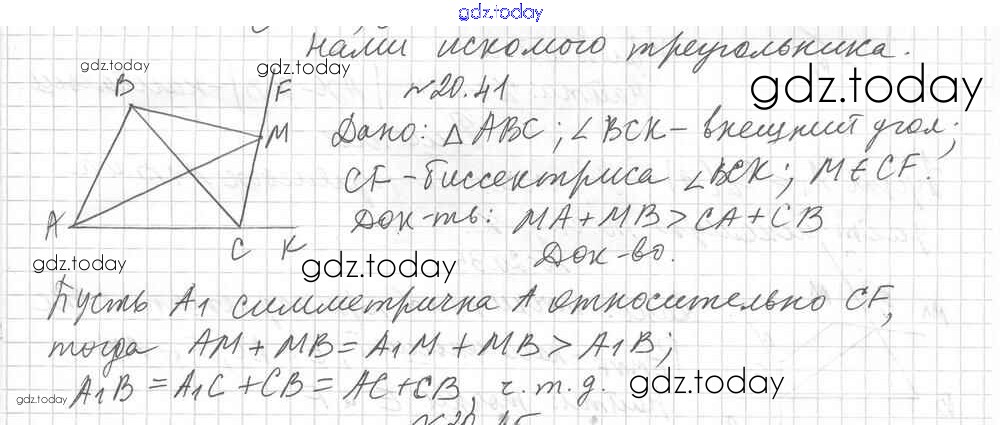 gdz.today
нами искомого треугольника.
gdz.today
gdz.today
gdz.today
B
F
M
A
C
K
№20.41
Дано: △ABC; ∠BCK - внешний угол;
CF - биссектриса ∠BCK; M∈CF.
Док-ть: MA + MB > CA + CB
Док-во.
gdz.today
gdz.today
Пусть A1 симметрична A относительно CF,
тогда AM + MB = A1M + MB > A1B;
A1B = A1C + CB = AC + CB, ч.т.д.
gdz.today
gdz.today